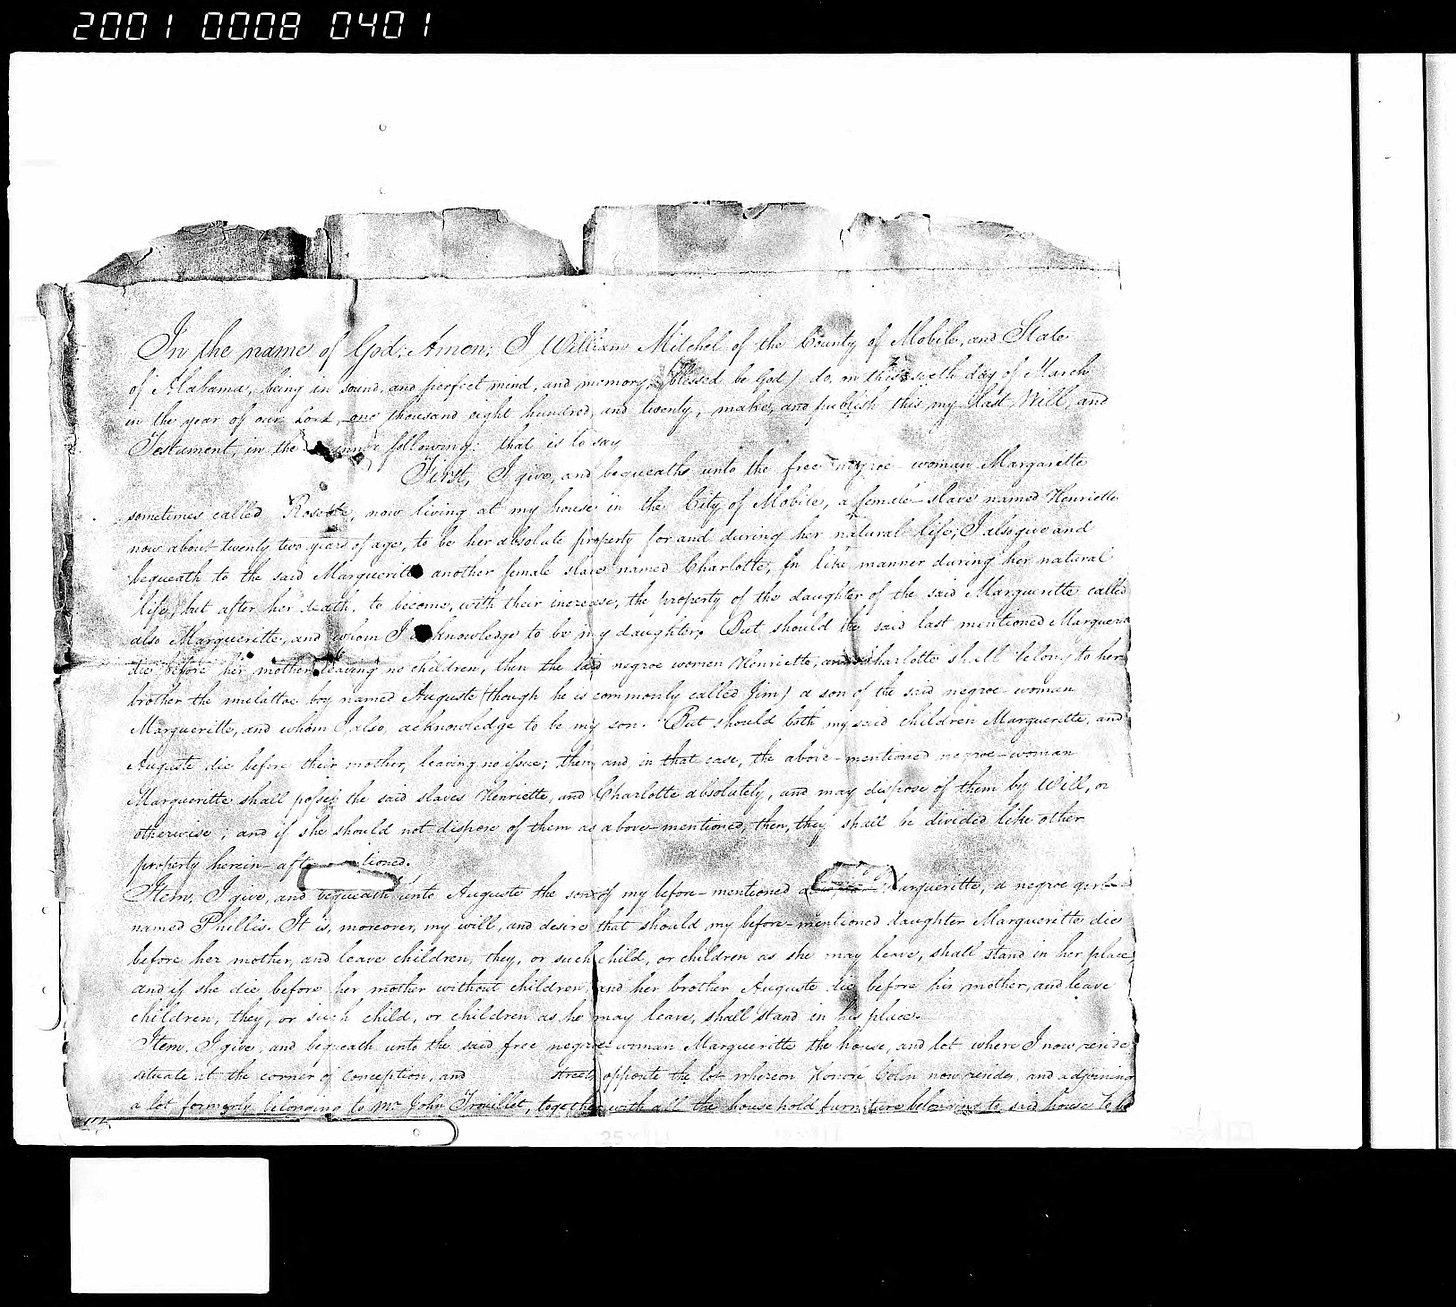 2001 0008 0401
In the name of God: Amen: I William Mitchel of the County of Mobile, and State
of Alabama, being in sound, and perfect mind, and memory, (blessed be God) do, on this sixth day of March
in the year of our Lord one thousand eight hundred, and twenty, make, and publish this my last Will, and
Testament, in the manner following: that is to say
First, I give, and bequeathe unto the free negroe-woman Margarette
sometimes called Rosette, now living at my house in the City of Mobile, a female-slave named Henriette
now about twenty two years of age, to be her absolute property for and during her natural life, I also give and
bequeath to the said Marguerite another female slave named Charlotte, in like manner during her natural
life, but after her death, to become, with their increase, the property of the daughter of the said Marguerite called
also Marguerette, and whom I acknowledge to be my daughter. But should the said last mentioned
die before her mother, leaving no children, then the said negroe women Henriette, and Charlotte shall belong to her
brother the mulattoe boy named Auguste (though he is commonly called Jim) a son of the said negroe-woman
Marguerite, and whom I also, acknowledge to be my son. But should both my said children Marguerette, and
Auguste die before their mother, leaving no issue; then, and in that case, the above-mentioned negroe-woman
Marguerette shall possess the said slaves Henriette, and Charlotte absolutely, and may dispose of them by Will, or
otherwise; and if she should not dispose of them as above-mentioned, then, they shall be divided like other
property herein-after tioned.
Item. I give, and bequeath unto Auguste the son of my before-mentioned arguerette, a negroe girl
named Phillis. It is, moreover, my will, and desire that should my before-mentioned daughter Marguerette die
before her mother, and leave children, they, or such child, or children as she may leave, shall stand in her place
and if she die before her mother without children, and her brother Auguste die before his mother, and leave
children, they, or such child, or children as he may leave, shall stand in his place.
Item. I give, and bequeath unto the said free negroe-woman Marguerette the house, and lot where I now reside
situate at the corner of Conception, and street, opposite the lot whereon Honore Colin now resides, and adjoining
a lot formerly belonging to Mr John Trouillet, together with all the household furniture belonging to said house to be